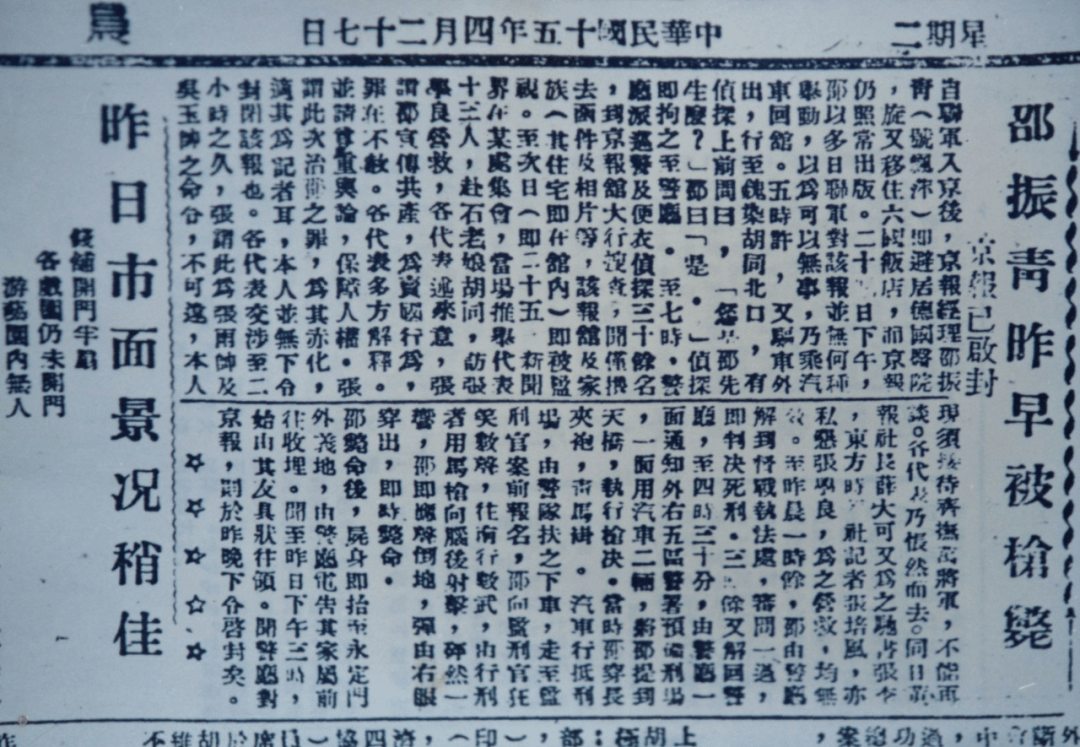 星期二
中華民國十五年四月二十七日
晨
邵振青昨早被槍斃
京報已啟封
自聯軍入京後，京報經理邵振
青（號飄萍）即避居德國醫院
，旋又移住六國飯店，而京報
仍照常出版。二十 日下午，
邵以多日聯軍對該報並無何種
舉動，以為可以無事，乃乘汽
車回館。五時許，又驅車外
出，行至魏染胡同北口，有
偵探上前問曰，「您是邵先
生麼？」邵曰「是。」偵探
即拘之至警廳。至七時，警
廳派巡警及便衣偵探三十餘名
，到京報館大行搜查，聞僅攜
去函件及相片等，該報館及家
族（其住宅即在館內）即被監
視。至次日（即二十五 新聞
界在某處集會，當場推舉代表
十三人，赴石老娘胡同，訪張
學良營救，各代表述來意，張
謂邵宣傳共產，為賣國行為，
罪在不赦。各代表多方解釋。
並請尊重輿論，保障人權。張
謂此次治邵之罪，為其赤化，
適其為記者耳，本人並無下令
封閉該報也。各代表交涉至二
小時之久，張謂此為張雨帥及
吳玉帥之命令，不可違，本人
現須接待齊撫萬將軍，不能再
談。各代表乃悵然而去。同日
報社長薛大可又為之馳書張李
，東方時 社記者張培風，亦
私懇張學良，為之營救，均無
效。至昨晨一時餘，邵由警廳
解到督戰執法處，審問一過，
即判決死刑。三 餘又解回警
廳，至四時三十分，由警廳一
面通知外右五區警署預備刑場
，一面用汽車二輛，將邵提到
天橋，執行槍決。當時邵穿長
夾袍，青馬褂。汽車行抵刑
場，由警隊扶之下車，走至監
刑官案前報名，邵向監刑官狂
笑數聲，往南行數武，由行刑
者用馬槍向腦後射擊，砰然一
響，邵即應聲倒地，彈由右眼
穿出，即時斃命。
邵斃命後，屍身即抬至永定門
外義地，由警廳電告其家屬前
往收埋。聞至昨日下午三時，
始由其友具狀往領。聞警廳對
京報，則於昨晚下令啓封矣。
☆☆☆☆☆
昨日市面景况稍佳
錢舖開門半扇
各戲園仍未開門
游藝園內無人